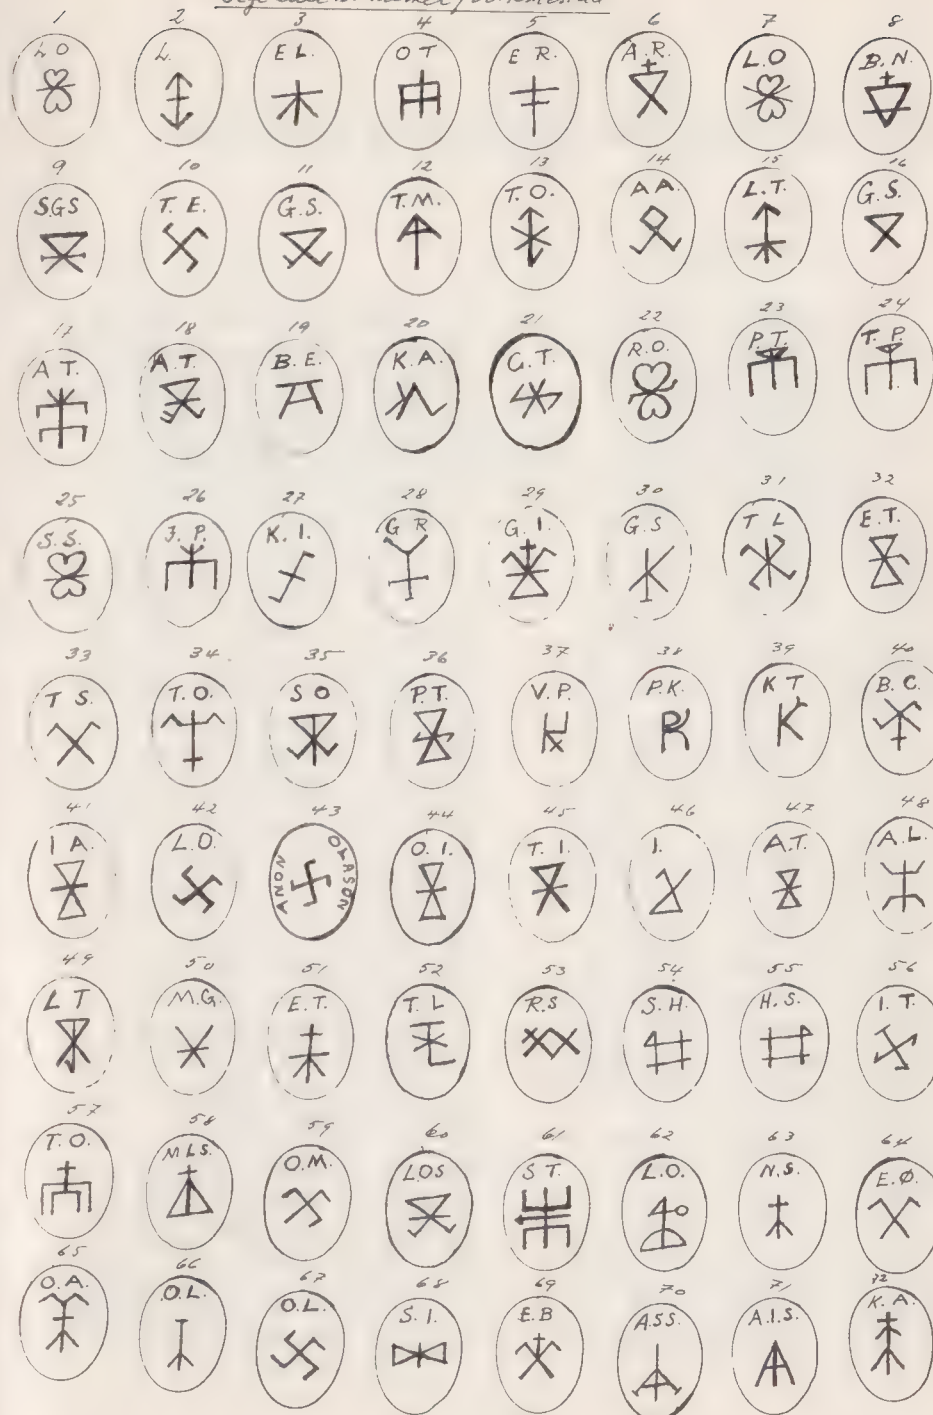 1 2 3 4 5 6 7 8
L O L. E L. O T E R. A.R. L.O B.N.
9 10 11 12 13 14 15 16
S.G.S T. E. G.S. T.M. T.O. A A. L.T. G.S.
17 18 19 20 21 22 23 24
A T. A.T. B.E. K.A. G.T. R.O. P.T. T.P.
25 26 27 28 29 30 31 32
S.S. J.P. K.I. G R G.I. G.S T L E.T.
33 34. 35 36 37 38 39 40
T S. T.O. S O P.T. V.P. P.K. K T B.C.
41 42 43 44 45 46 47 48
I A. L.O. ANON OLASON O.I. T.I. I. A.T. A.L.
49 50 51 52 53 54 55 56
L T M.G. E.T. T.L R.S S.H. H.S. I.T.
57 58 59 60 61 62 63 64
T.O. MLS. O.M. LOS S T. L.O. N.S. E.Ø.
65 66 67 68 69 70 71 72
O.A. O.L. O.L. S.I. E.B A.S.S. A.I.S. K.A.